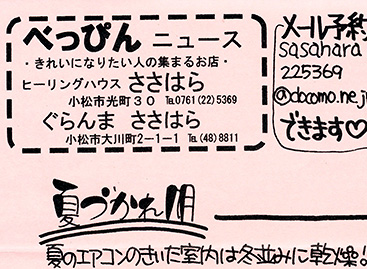 べっぴん ニュース
・きれいになりたい人の集まるお店・
ヒーリングハウス ささはら
小松市光町30 ℡0761(22)5369
ぐらんま ささはら
小松市大川町2-1-1 ℡(48)8811
メール予約
sasahara
225369
@docomo.ne.j
できます♡
夏づかれ
夏のエアコンのきいた室内は冬並みに乾燥!